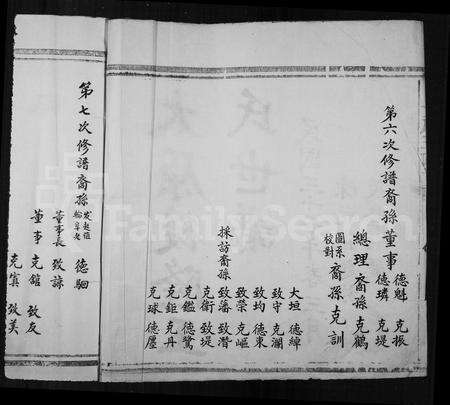 第六次修譜裔孫董事 德魁 克振
德璘 克堤
總理裔孫克鶴
圖系
校對
裔孫克訓
採訪裔孫
大垣 德緯
致守 克瀾
致均 德東
致榮 克嶇
致藩 致潛
克衛 致堤
克鑑 德鷺
克鉅 克丹
克球 德壂
第七次修譜裔孫
德駟
董事長 致諒
董事 克鎧 致友
克寘 致美
FamilySearch